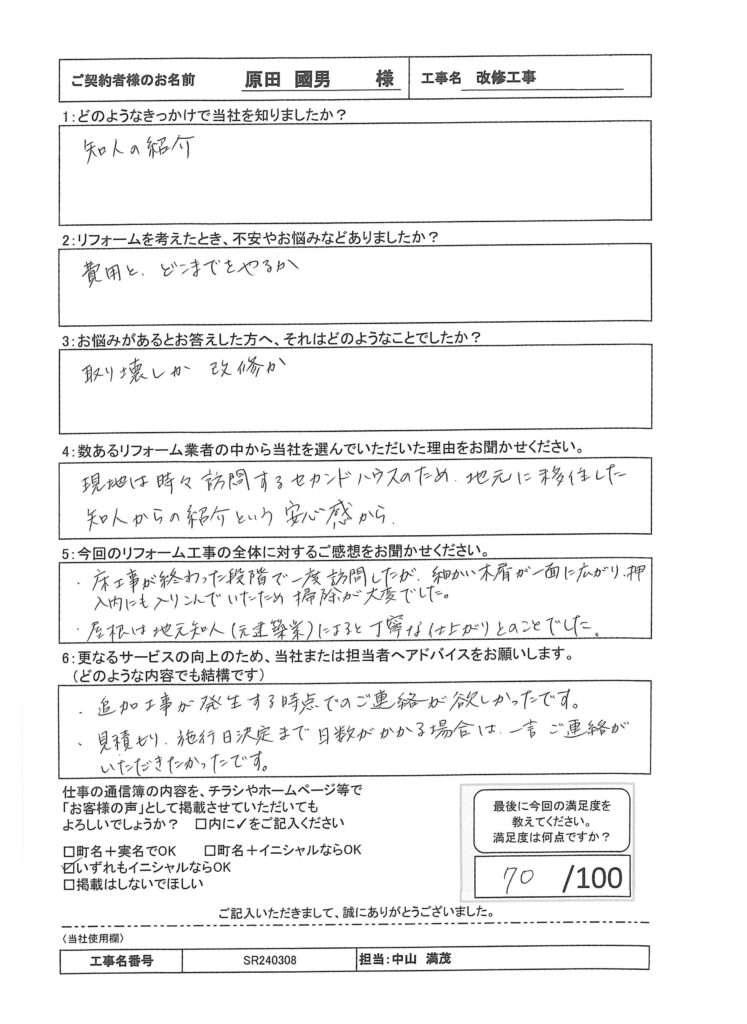 ご契約者様のお名前 原田 國男 様 工事名 改修工事
1:どのようなきっかけで当社を知りましたか？
知人の紹介
2:リフォームを考えたとき、不安やお悩みなどありましたか？
費用と、どこまでをやるか
3:お悩みがあるとお答えした方へ、それはどのようなことでしたか？
取り壊しか 改修か
4:数あるリフォーム業者の中から当社を選んでいただいた理由をお聞かせください。
現地は時々訪問するセカンドハウスのため、地元に移住した
知人からの紹介という安心感から.
5:今回のリフォーム工事の全体に対するご感想をお聞かせください。
・床工事が終わった段階で一度訪問したが、細かい木屑が一面に広がり、押
入内にも入りこんでいたため掃除が大変でした。
・屋根は地元知人(元建築業)によると丁寧な仕上がりとのことでした。
6:更なるサービスの向上のため、当社または担当者へアドバイスをお願いします。
(どのような内容でも結構です)
・追加工事が発生する時点でのご連絡が欲しかったです。
・見積もり、施行日決定まで日数がかかる場合は、一言ご連絡が
いただきたかったです。
仕事の通信簿の内容を、チラシやホームページ等で
「お客様の声」として掲載させていただいても
よろしいでしょうか？ □内に✓をご記入ください
□町名＋実名でOK □町名＋イニシャルならOK
☑いずれもイニシャルならOK
□掲載はしないでほしい
最後に今回の満足度を
教えてください。
満足度は何点ですか？
70 /100
ご記入いただきまして、誠にありがとうございました。
〈当社使用欄〉
工事名番号 SR240308 担当:中山 満茂